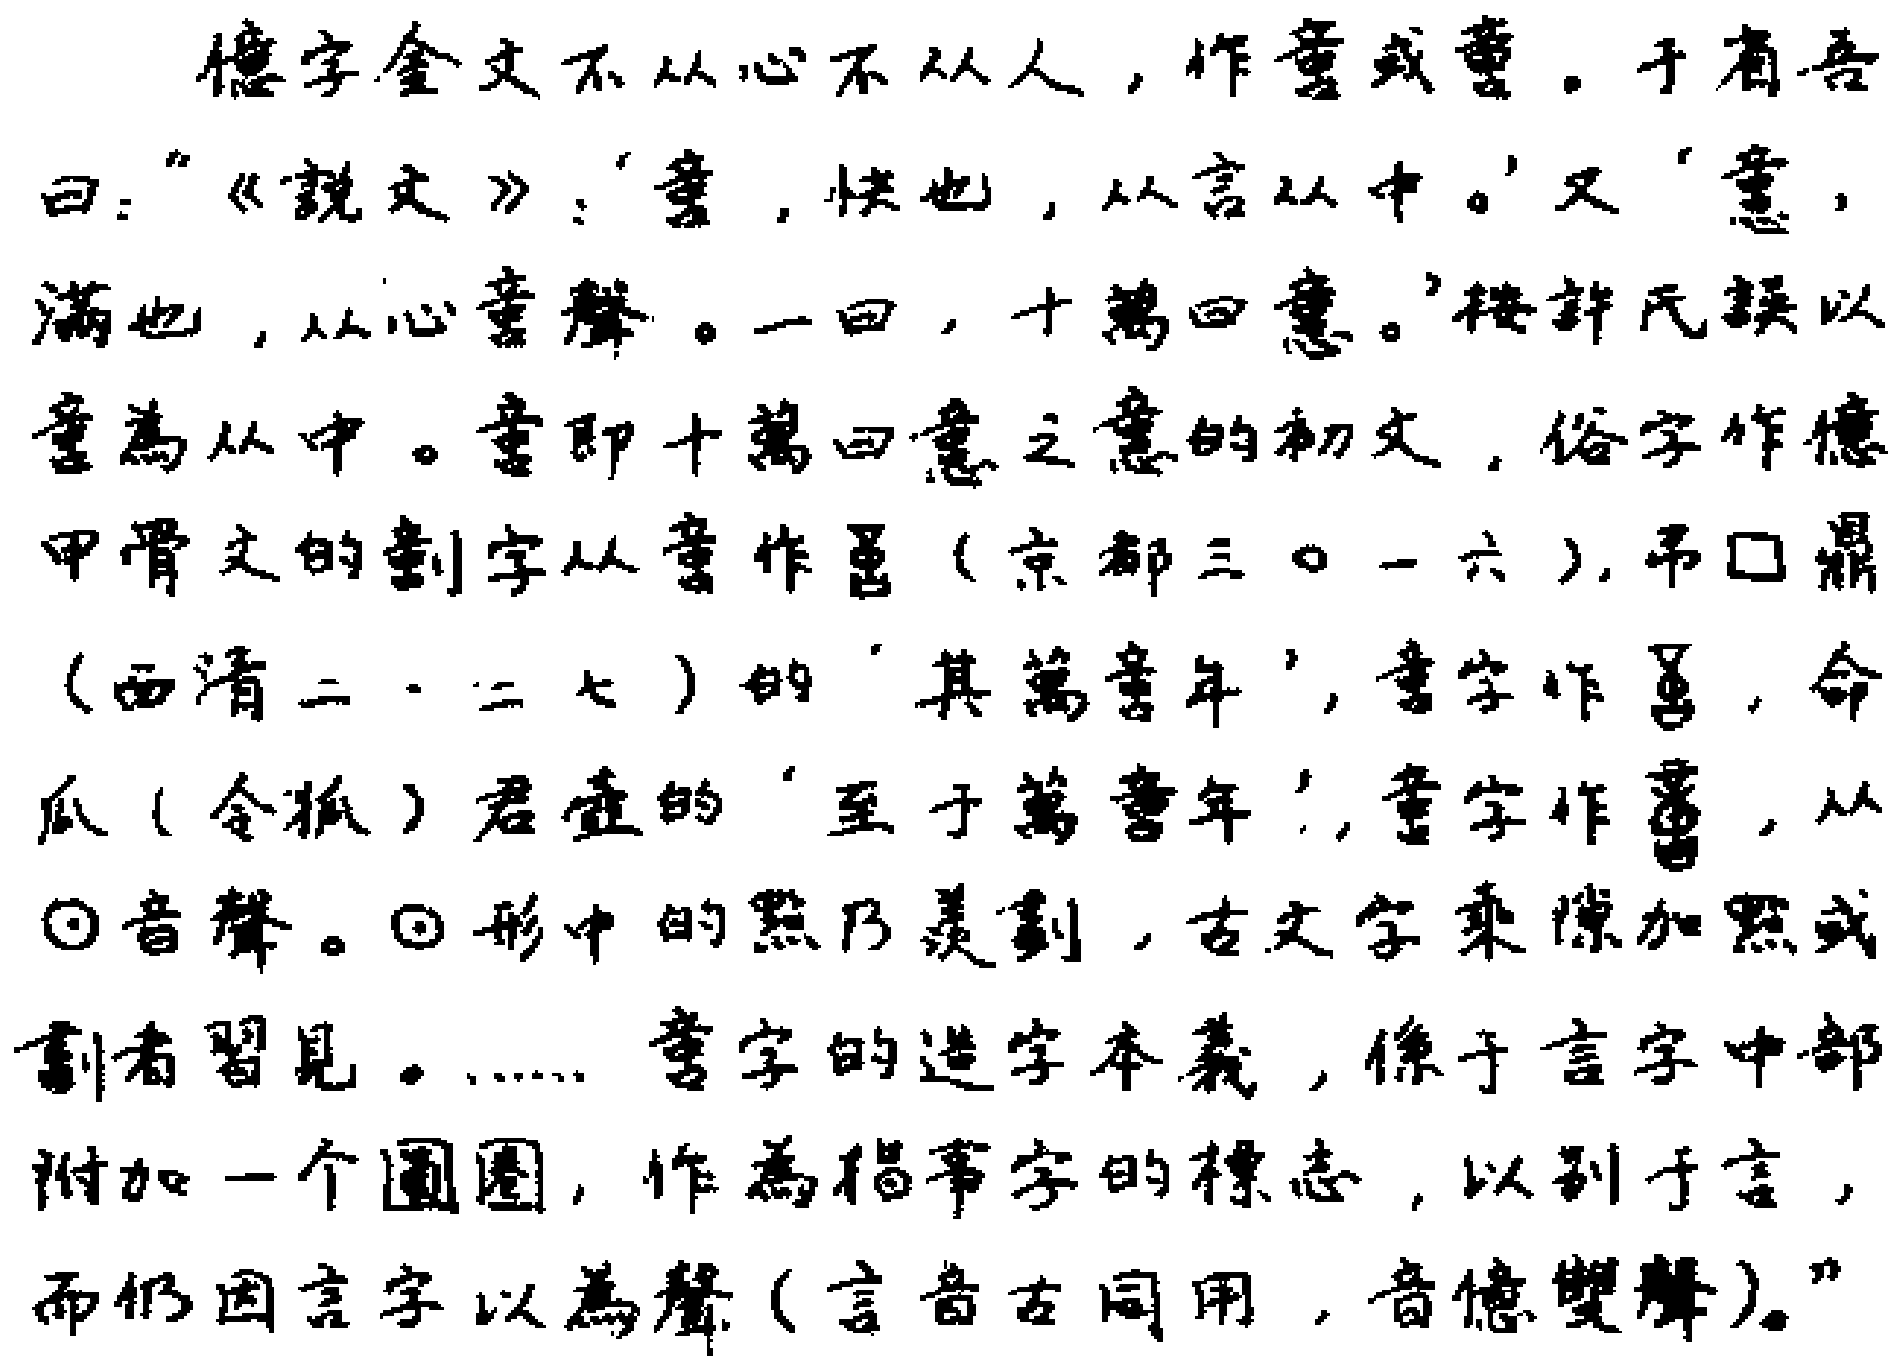 億字金文不从心不从人，作䇾或䇾。于省吾
曰：“《説文》：‘䇾，快也，从言从中。’又‘意，
滿也，从心䇾聲。一曰，十萬曰意。’按許氏誤以
䇾為从中。䇾即十萬曰意之意的初文，俗字作億
甲骨文的劃字从䇾作（京都三〇一六），弔□鼎
（西清二·二七）的‘其萬䇾年’，䇾字作，命
瓜（令狐）君壺的‘至于萬䇾年’，䇾字作，从
⊙音聲。⊙形中的點乃羨劃，古文字乘隙加點或
劃者習見。……䇾字的造字本義，係于言字中部
附加一个圓圈，作為指事字的標志，以别于言，
而仍因言字以為聲（言音古同用，音億雙聲）。”